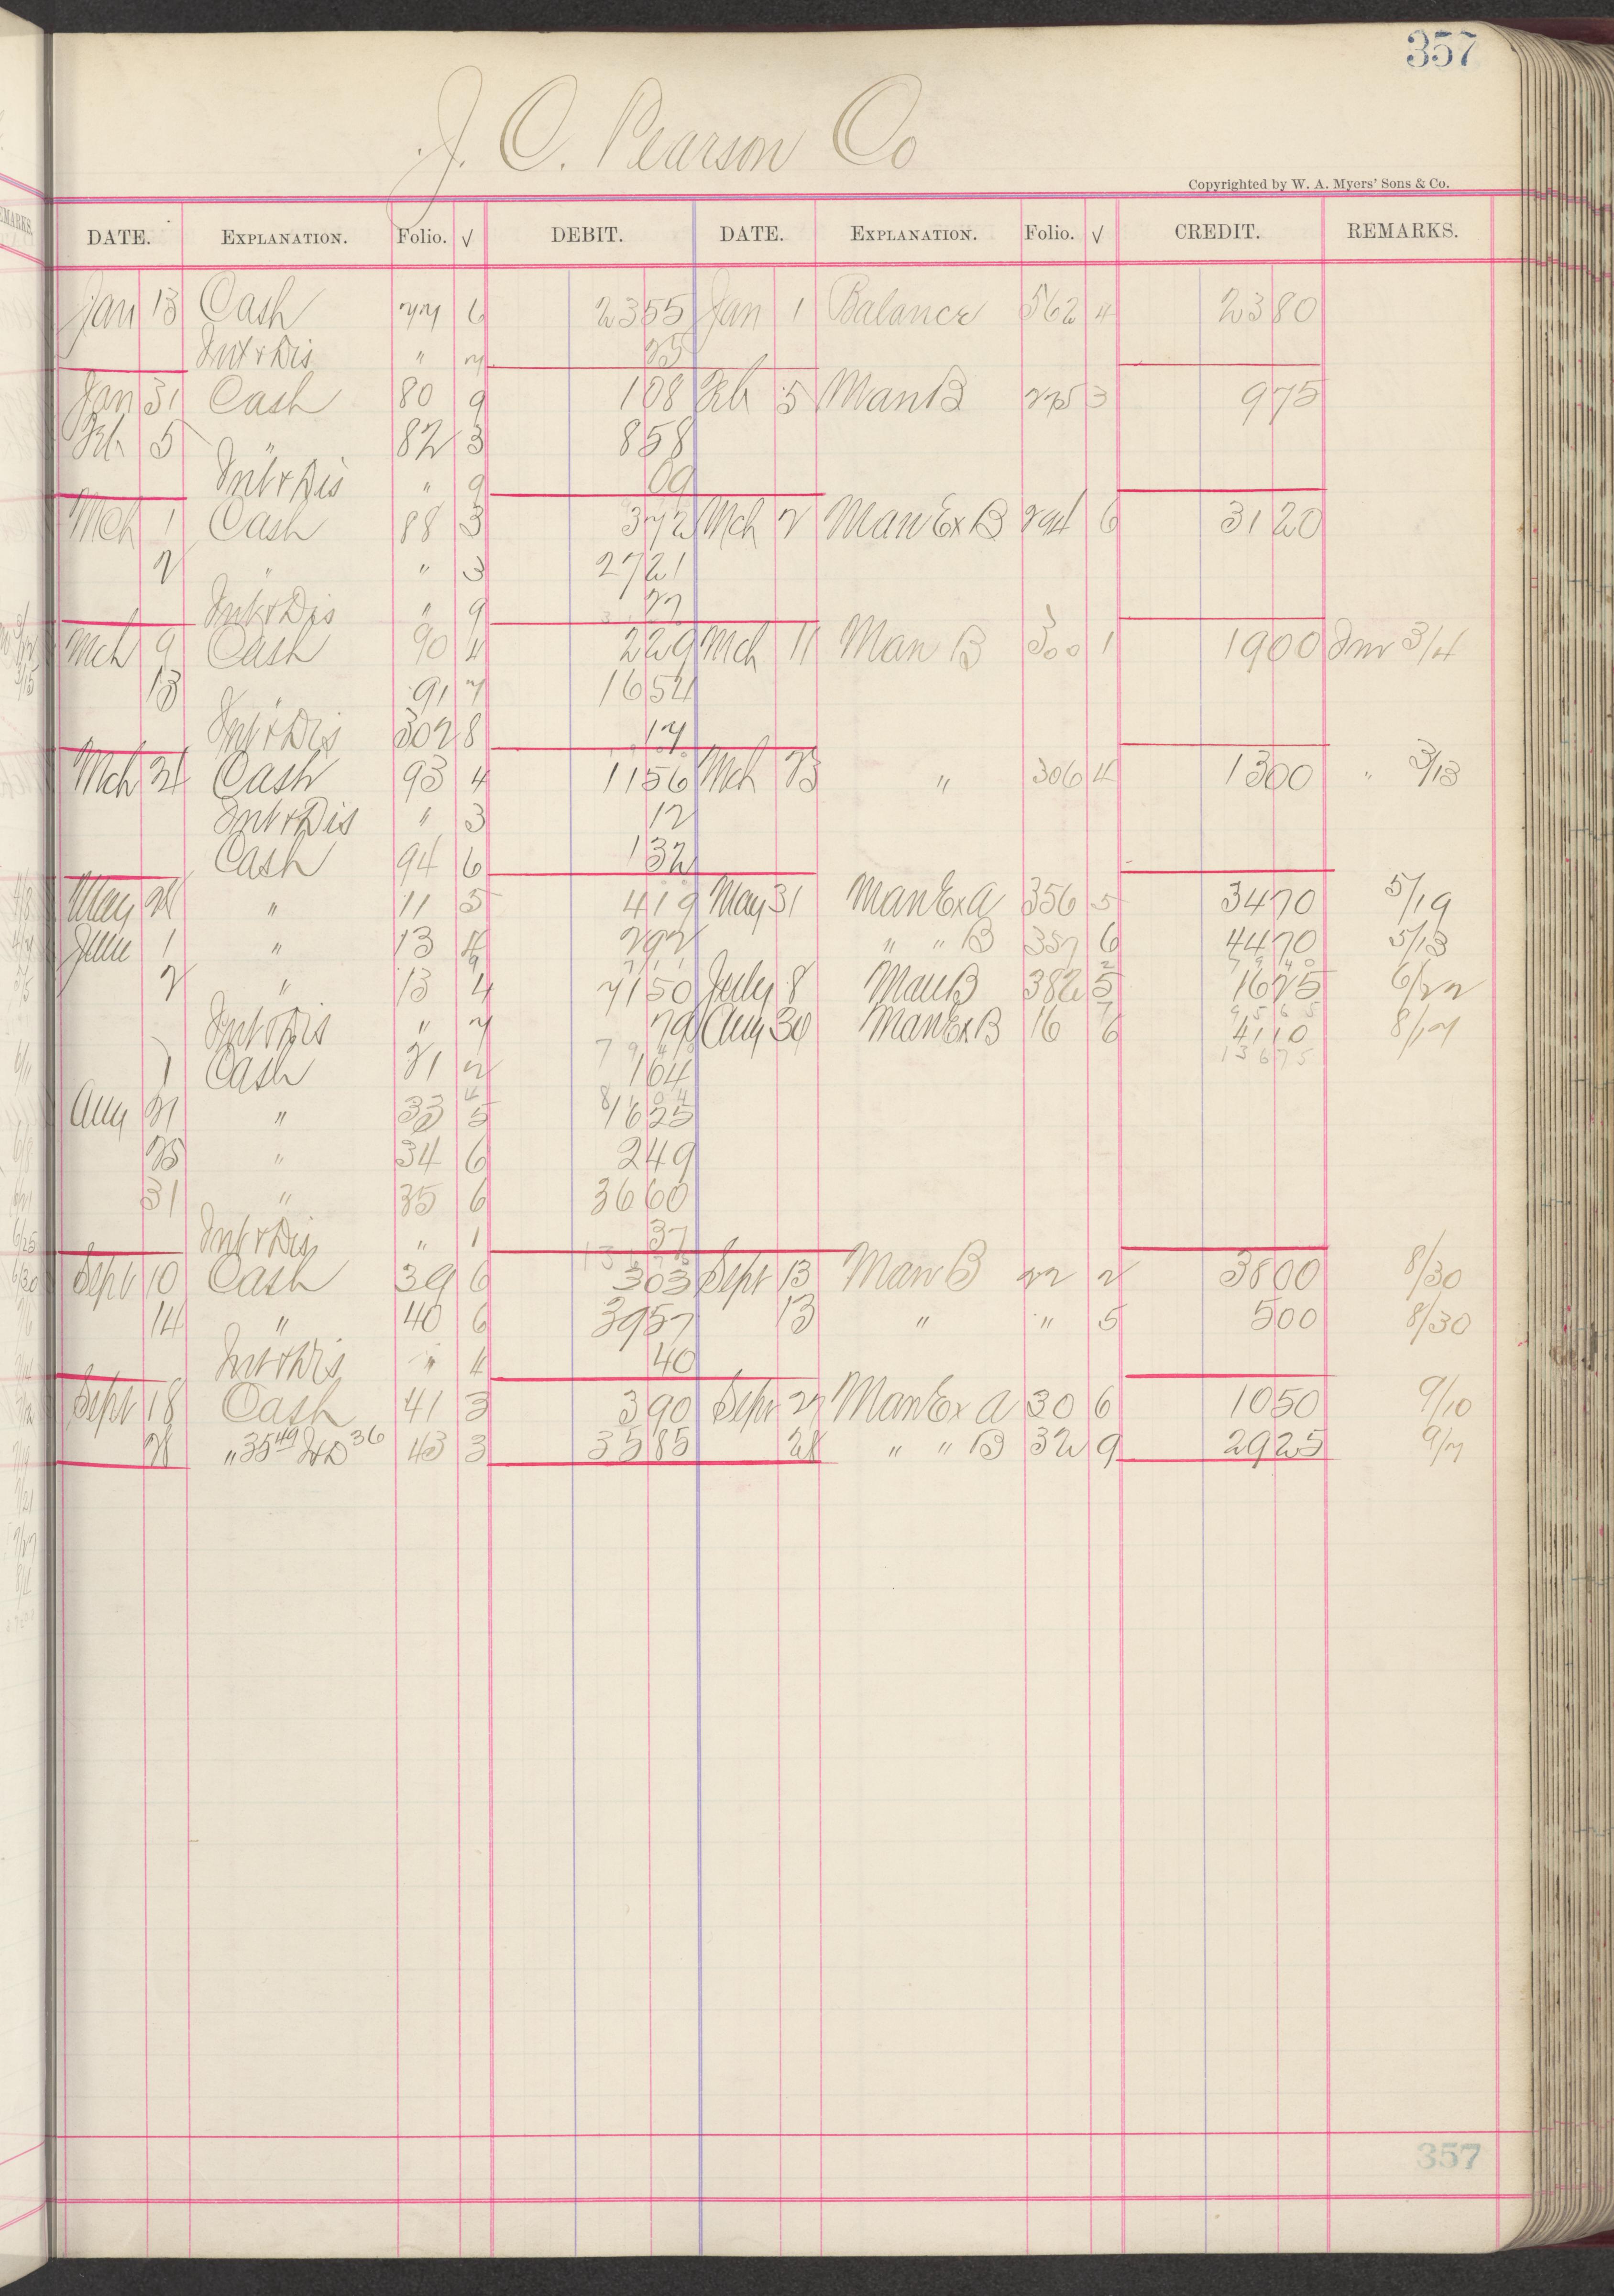 357
J. C. Pearson Co
Copyrighted by W. A. Myers' Sons & Co.
DATE. EXPLANATION. Folio. √ DEBIT. DATE. EXPLANATION. Folio. √ CREDIT. REMARKS.
Jan 13 Cash 77 6 2355 Jan 1 Balance 562 4 2380
Int & Dis " 7 25
Jan 31 Cash 80 9 108 Feb 5 Man B 275 3 975
Feb 5 " 82 3 858
Int & Dis " 9 09
Mch 1 Cash 88 3 372 Mch 2 Man Ex B 294 6 3120
2 " " 3 2721
Int & Dis " 9 27
Mch 9 Cash 90 4 229 Mch 11 Man B 300 1 1900 Inv 3/4
13 " 91 7 1654
Int & Dis 302 8 17
Mch 24 Cash 93 4 1156 Mch 23 " 306 4 1300 " 3/13
Int & Dis " 3 12
Cash 94 6 132
May 24 " 11 5 419 May 31 Man Ex A 356 5 3470 5/19
June 1 " 13 4 292 " " B 357 6 4470 5/13
2 " 13 4 7150 July 8 Man B 382 5 1625 6/22
Int & Dis " 7 79 Aug 30 Man Ex B 16 6 4110 8/17
13675
Cash 21 2 164
Aug 21 " 33 5 1625
25 " 34 6 249
31 " 35 6 3660
Int & Dis " 1 37
Sept 10 Cash 39 6 303 Sept 13 Man B 22 2 3800 8/30
14 " 40 6 3957 13 " " 5 500 8/30
Int & Dis " 4 40
Sept 18 Cash 41 3 390 Sept 27 Man Ex A 30 6 1050 9/10
" 3549 36 43 3 3585 28 " " B 32 9 2925 9/7
357